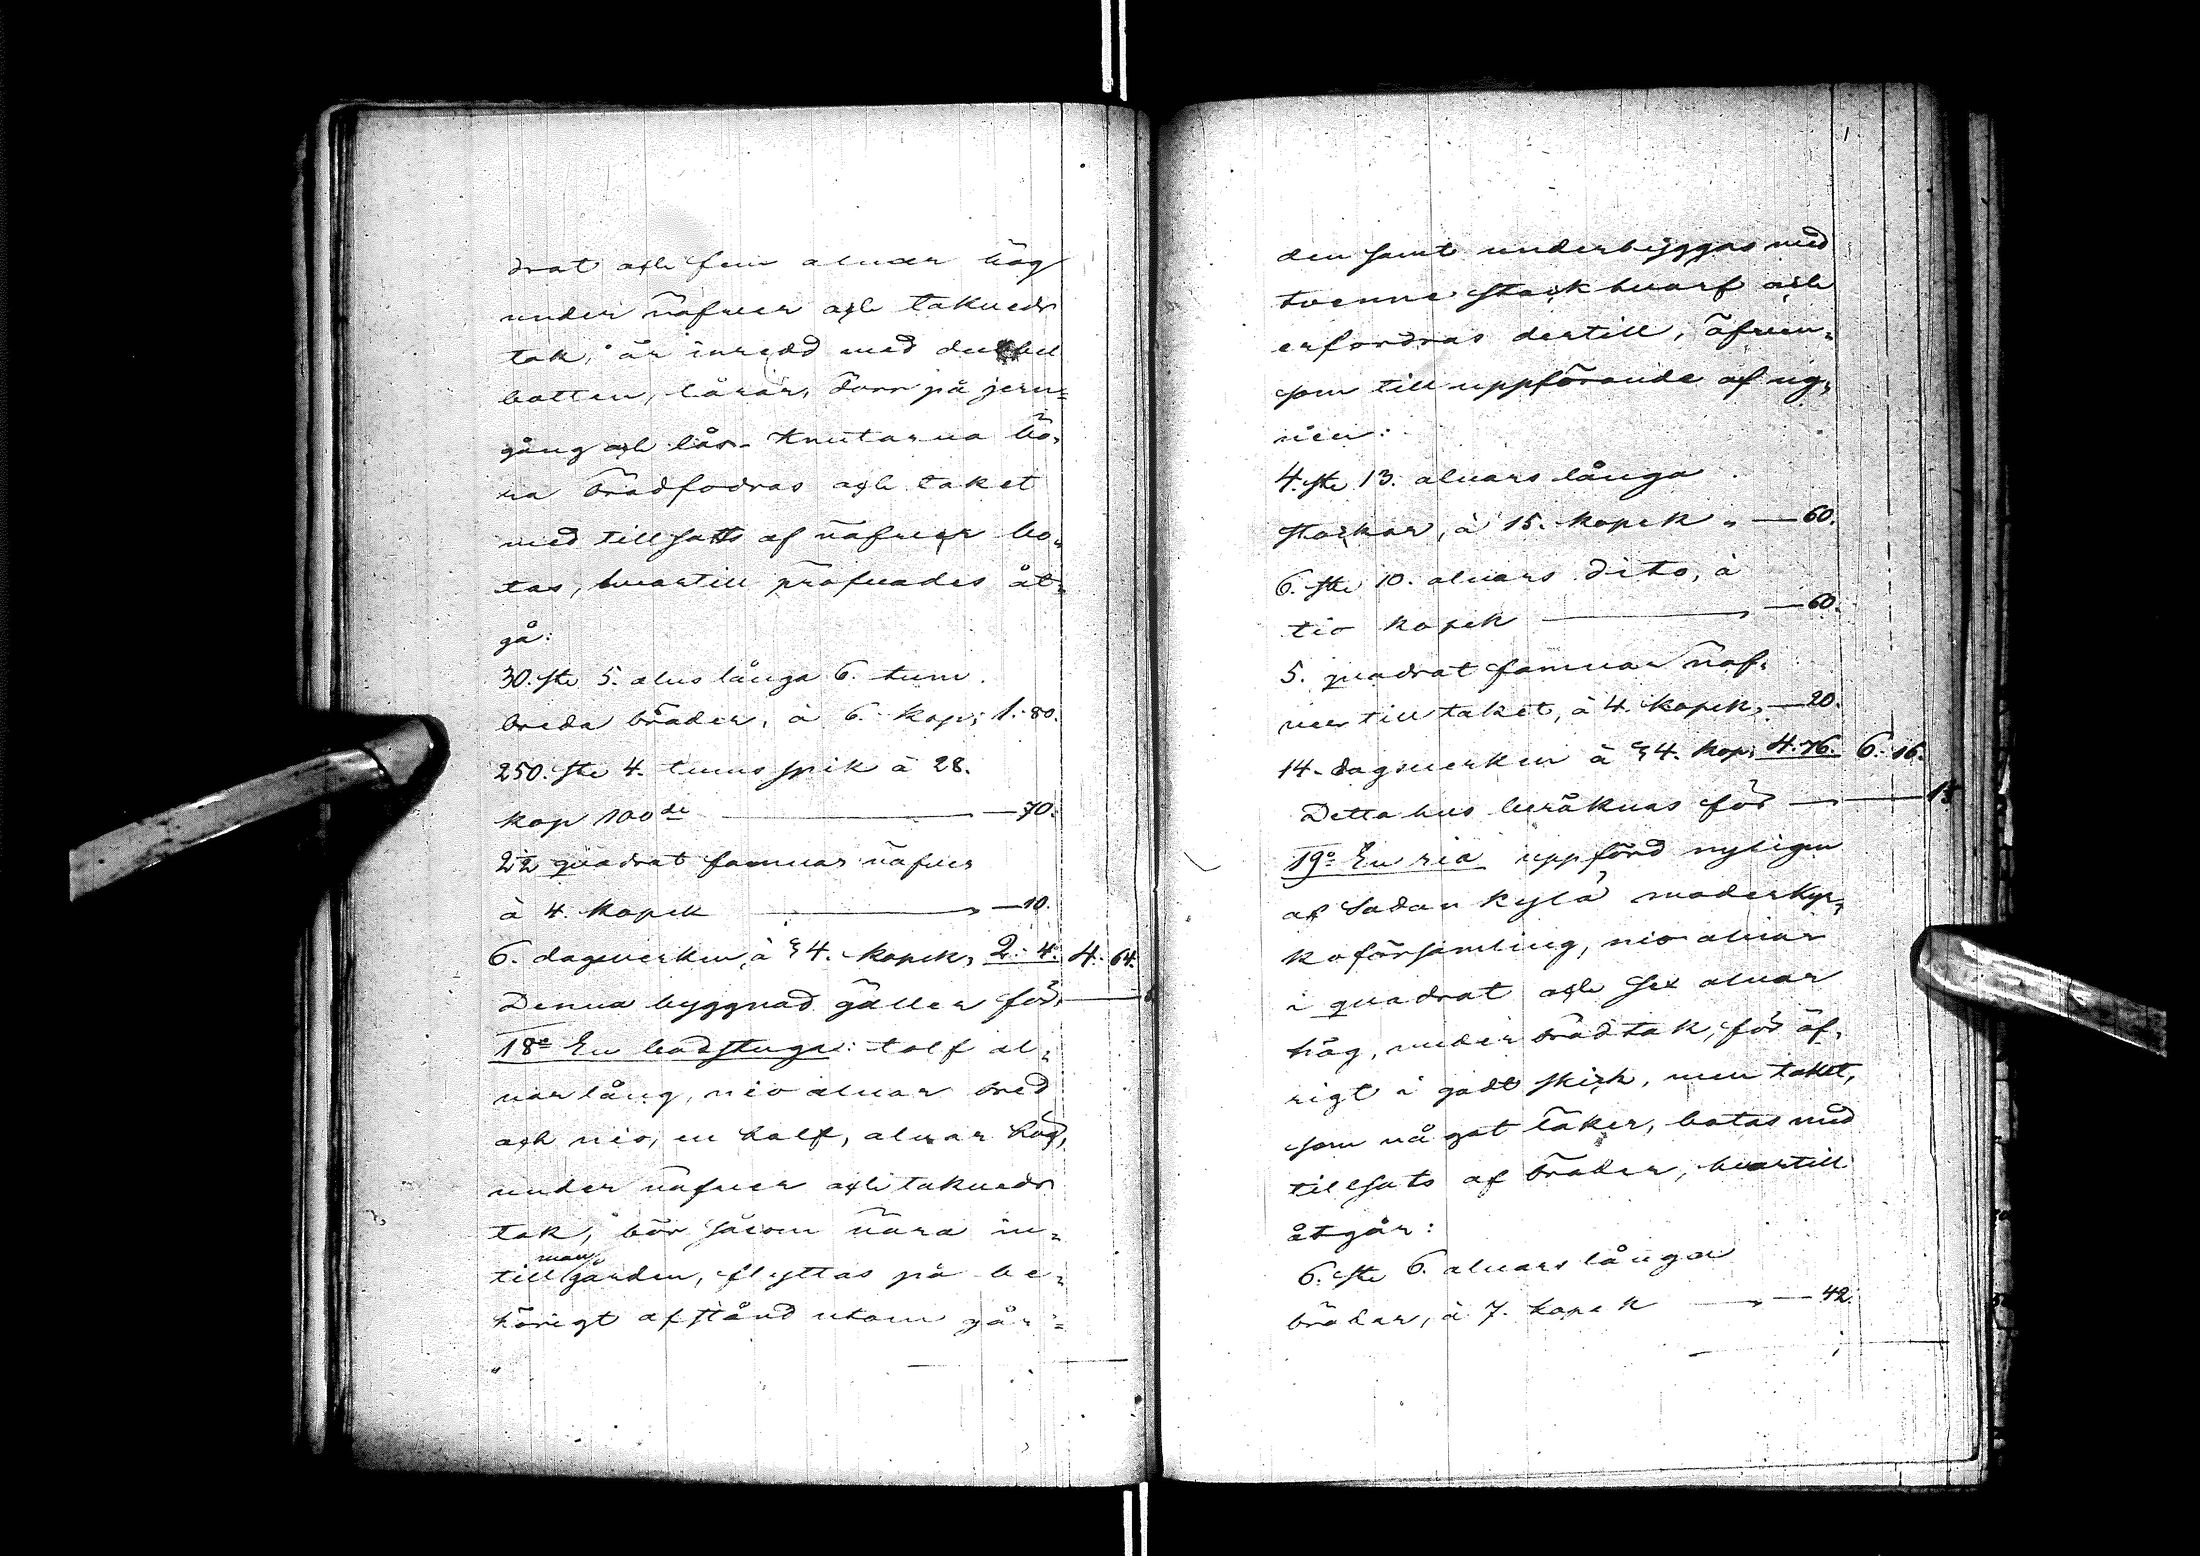 drat och fem alnar hög
under näfver och takveds
tak, är inredd med dubbel
botten, lårar, dörr på jern=
gång och lås. Knutarna bö,
ra brädfodras och taket
med tillsatts af näfver bo,
tas, hvartill pröfvades åt,
gå:
30. st: 5. alns långa 6. tum
breda bräder, à 6. kop; 1. 80.
250. st: 4. tums spik à 28.
kop 100de — 70.
2½ quadrat famnar näfver
à 4. kopek — 10.
6. dagsverken, à 34. kopek, 2. 4. 4. 64.
Denna byggnad gäller för,
18o En badstuga: tolf al,
nar lång, nio alnar bred
och nio, en half, alnar hög,
under näfver och takveds
tak, bör såsom nära in,
till mangården, flyttas på be,
hörigt afstånd utom går=
den samt underbyggas med
tvenne stockhvarf och
erfordras dertill, äfven,
som till uppförande af ug,
nen:
4. st: 13. alnars långa
stockar, à 15. kopek „ — 60.
6. st: 10. alnars dito, à
tio kopek — 60.
5. quadrat famnar näf,
ver till taket, à 4. kopek, — 20.
14. dagsverken à 34. kop; 4. 76. 6. 16.
Detta hus beräknas för — 15
19o En ria uppförd nyligen
af Sadankylä moderkyr,
koförsamling, nio alnar
i quadrat och sex alnar
hög, under brädtak, för öf,
rigt i godt skick, men taket,
som något läker, botas med
tillsats af bräder, hvartill
åtgår:
6. st: 6. alnars långa
bräder, à 7. kopek — 42.